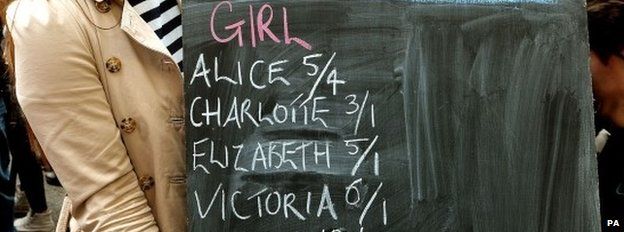 GIRL
ALICE 5/4
CHARLOTTE 3/1
ELIZABETH 5/1
VICTORIA 6/1
PA